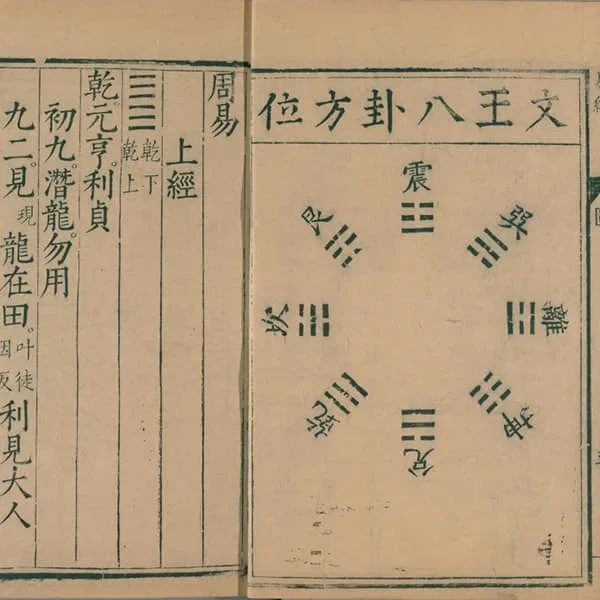 文王八卦方位
震
巽
離
坤
兌
乾
坎
艮
周易
上經
乾下
乾上
乾。元亨。利貞
初九。潛龍。勿用
九二。見現龍在田。叶徒因反利見大人